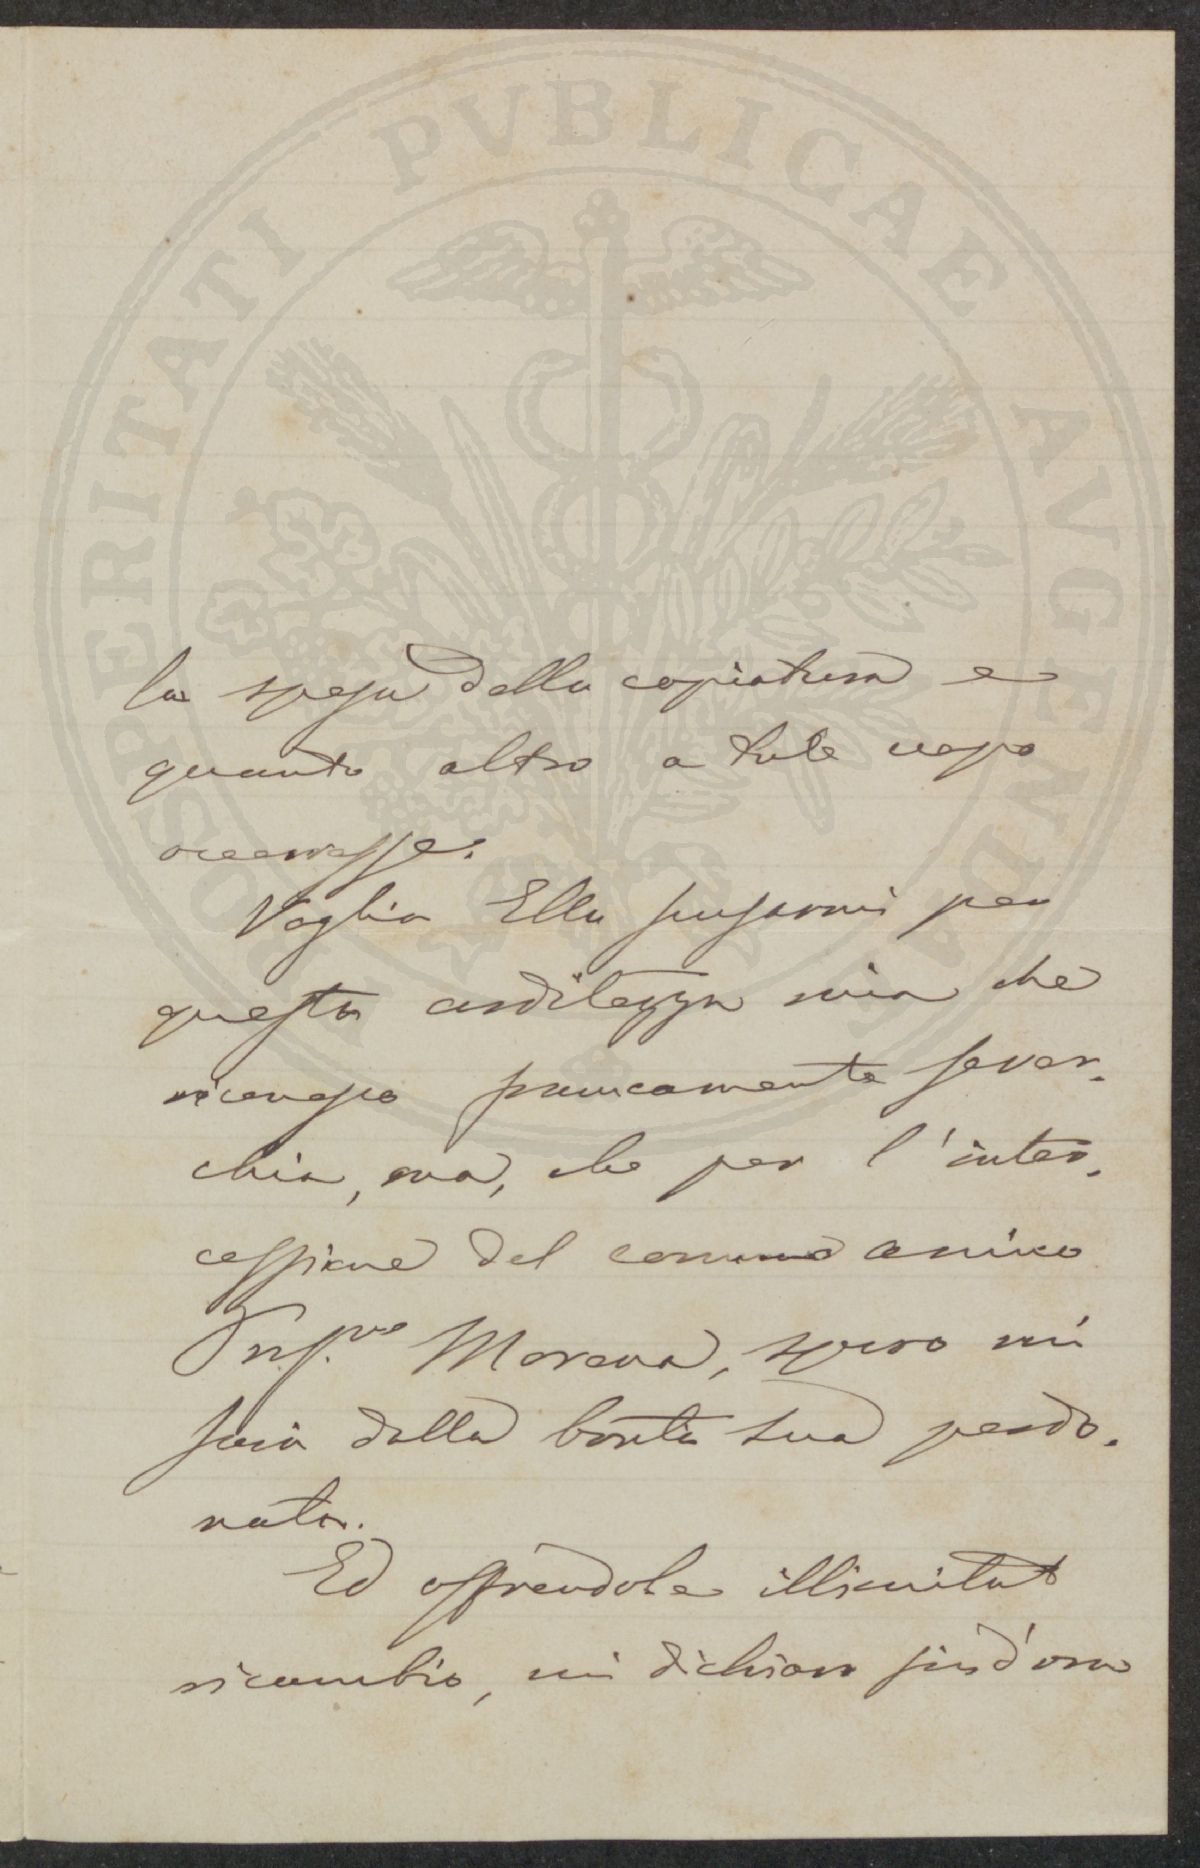 PROSPERITATI PVBLICAE AVGENDAE
la spesa della copiatura e
quanto altro a tale uopo
occorresse.
Voglia Ella scusarmi per
questa arditezza mia che
riconosco francamente sover.
chia, ma, che per l'inter.
cessione del comune amico
Prof.re Morena, spero mi
sarà dalla bontà sua perdo.
nata.
Ed offrendole illimitato
ricambio, mi dichiaro sin d'ora